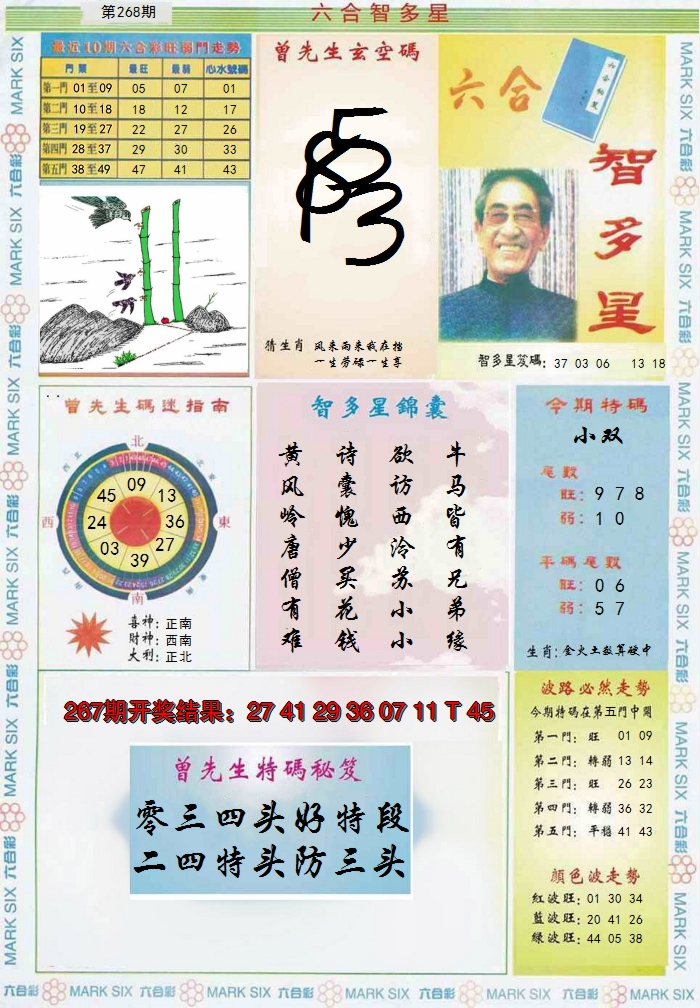 第268期
六合智多星
最近10期六合彩旺弱門走勢
門票 最旺 最弱 心水號碼
第一門 01至09 05 07 01
第二門 10至18 18 12 17
第三門 19至27 22 27 26
第四門 28至37 29 30 33
第五門 38至49 47 41 43
曾先生玄空碼
猜生肖 风来雨来我在挡
一生劳碌一生享
六合
智多星
智多星笈碼: 37 03 06 13 18
曾先生碼迷指南
北
東
南
西
09
13
36
27
39
03
24
45
喜神: 正南
财神: 西南
大利: 正北
智多星錦囊
牛马皆有兄弟缘
欲访西泠苏小小
诗囊愧少买花钱
黄风岭唐僧有难
今期特碼
小双
尾數
旺: 9 7 8
弱: 1 0
平碼尾數
旺: 0 6
弱: 5 7
生肖: 金火土数算硬中
267期开奖结果: 27 41 29 36 07 11 T 45
曾先生特碼秘笈
零三四头好特段
二四特头防三头
波路必然走勢
今期特碼在第五門中開
第一門: 旺 01 09
第二門: 轉弱 13 14
第三門: 旺 26 23
第四門: 轉弱 36 32
第五門: 平穩 41 43
顏色波走勢
紅波旺: 01 30 34
藍波旺: 20 41 26
綠波旺: 44 05 38
六合彩 MARK SIX 六合彩 MARK SIX 六合彩 MARK SIX 六合彩 MARK SIX